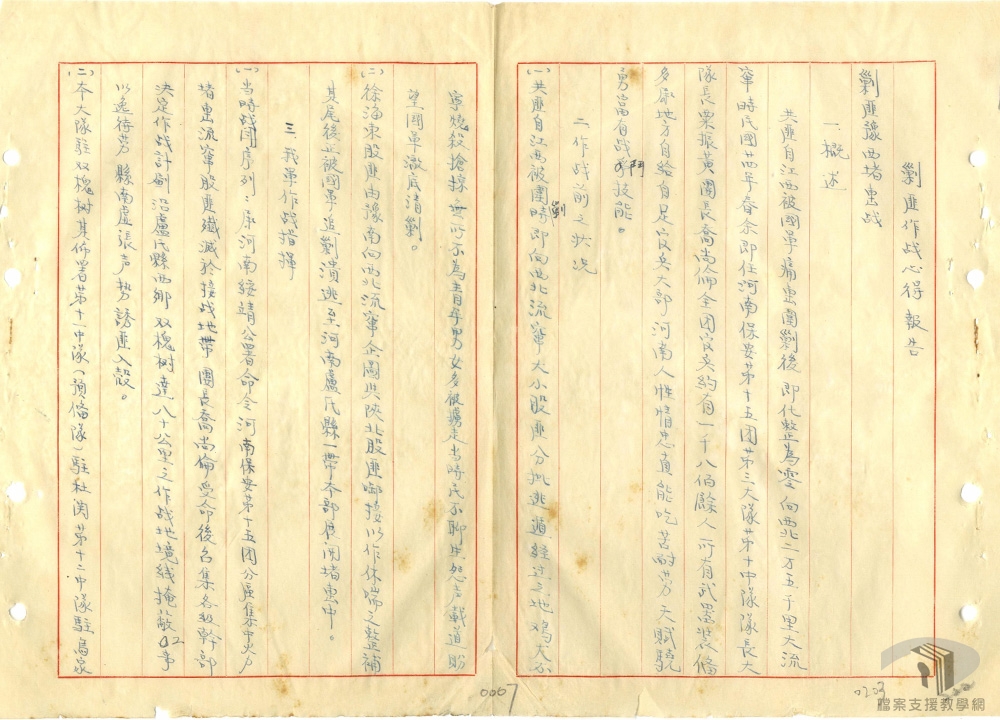 剿匪作战心得報告
剿匪豫西堵击战
一、概述
共匪自江西被國軍痛击圍剿後即化整為零向西北二万五千里大流
窜時民國廿四年春余即任河南保安第十五团第三大隊第十中隊隊長大
隊長栗振黃團長喬尚倫全团官兵約有一千八佰餘人所有武器裝俻
多屬地方自給自足官兵大部河南人性情忠直能吃苦耐劳天賦驍
勇富有战鬥技能。
二作战前之狀况
(一)共匪自江西被圍剿時即向西北流窜大小股匪分批逃遁經过之地鸡犬不
寧燒殺搶掠無所不為青年男女多被擄走当時民不聊生怨声載道盼
望國軍澈底清剿。
(二)徐海東股匪由豫南向西北流窜企圖與陝北股匪啣接以作休喘之整補
其尾後正被國軍追剿潰逃至河南盧氏縣一帶本部長阅堵击中。
三、我軍作战指揮
(一)当時战閗序列：原河南綏靖公署命令河南保安第十五团分區集中火力
堵击流窜股匪殲滅於接战地帶團長喬尚倫受命後召集各級幹部
决定作战計劃沿盧氏縣西鄉双槐树達八十公里之作战地境线掩蔽
以逸待劳縣南虛張声势誘匪入殼。
(二)本大隊駐双槐树其佈署第十一中隊(預俻隊)駐杜関第十二中隊駐馬泉
0007
0203
檔案支援教學網